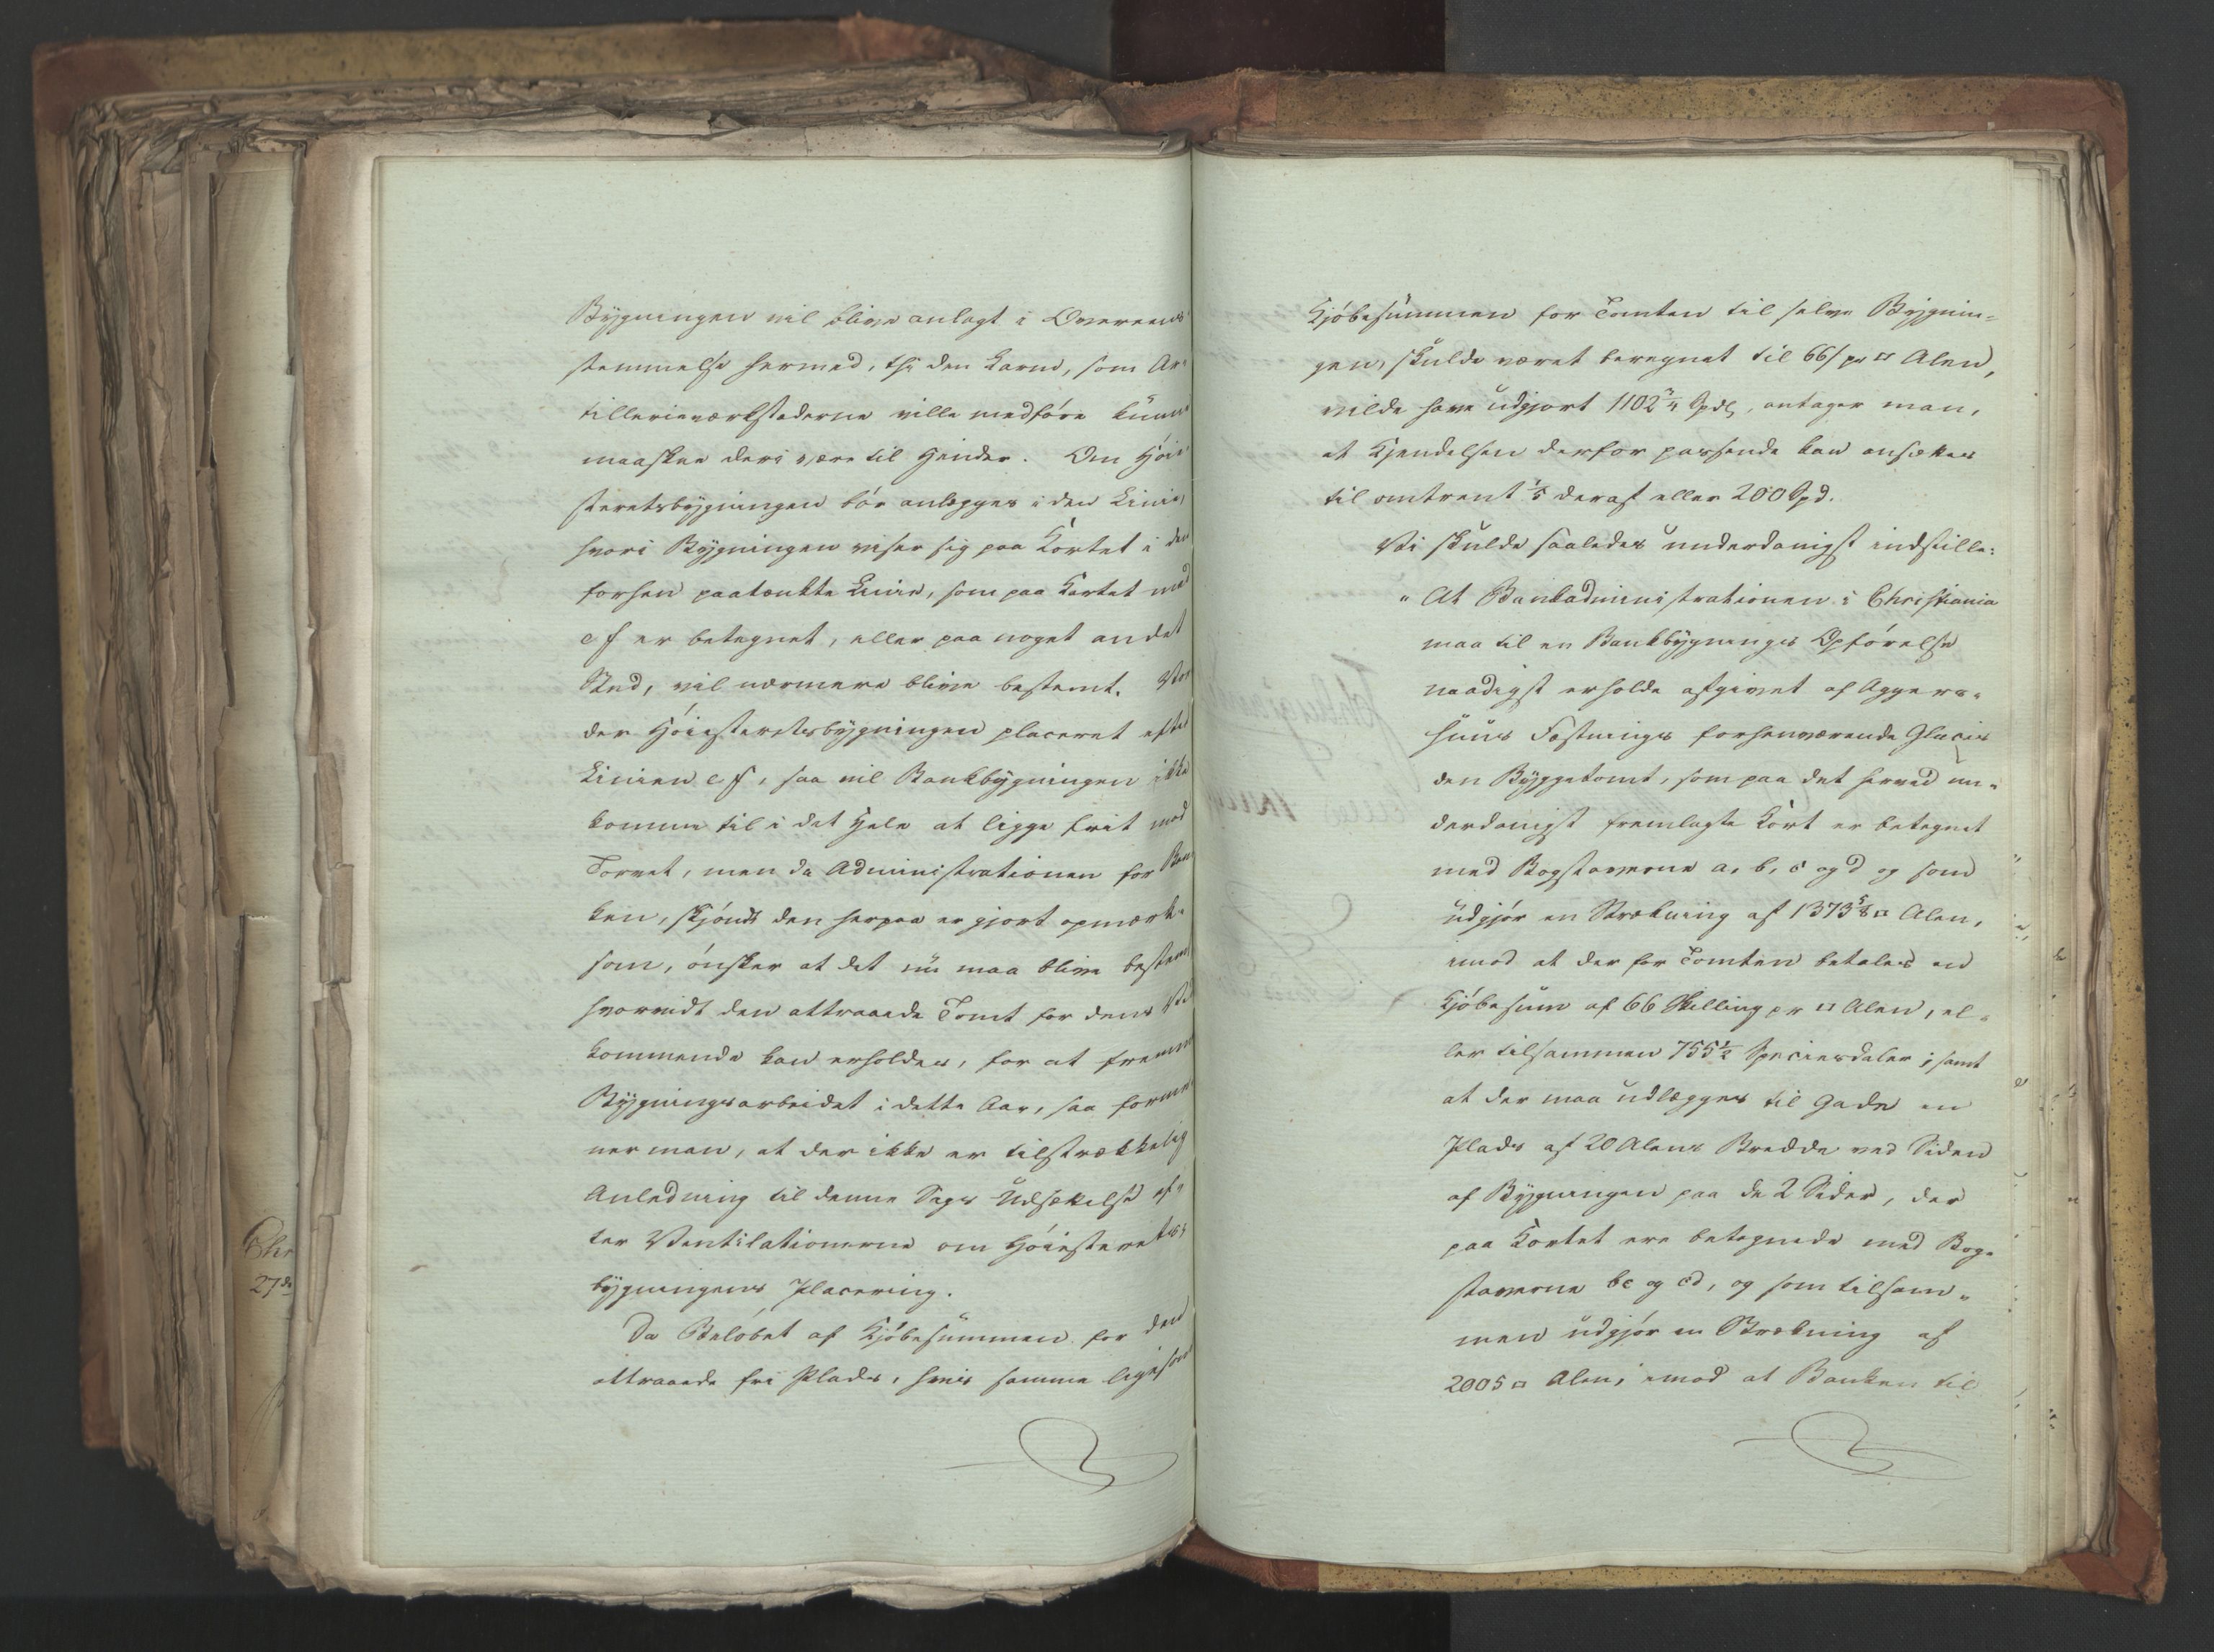 Bygningen vil blive anlagt i Overeens
stemmelse hermed, thi den Larm, som Ar-
tillerieværkstederne ville medføre kunne
maaskee deri være til Hinder. Om Høie
steretsbygningen bør anlægges i den Linie,
hvori Bygningen viser sig paa Kortet i den
forhen paatænkte Linie, som paa Kortet med
e f er betegnet, eller paa noget andet
Sted, vil nærmere blive bestemt. Vor
der Høiesteretsbygningen placeret efter
Linien e f, saa vil Bankbygningen ikke
komme til i det Hele at ligge frit mod
Torvet, men da Administrationen for Ban
ken, skjøndt den herpaa er gjort opmærk-
som, ønsker at det nu maa blive bestemt
hvorvidt den attraaede Tomt for dens Ved
kommende kan erholdes, for at fremme
Bygningsarbeidet i dette Aar, saa forme
ner man, at der ikke er tilstrækkelig
Anledning til denne Sags Udsættelse ef-
ter Ventilationerne om Høiesterets-
bygningens Placering.
Da Beløbet af Kjøbesummen for den
attraaede fri Plads, hvis samme ligesom
Kjøbesummen for Tomten til selve Bygnin-
gen, skulde været beregnet til 66 ß pr □ Alen,
vilde have udgjort 1102 3/4 Spdlr, antager man,
at Kjendelsen derfor passende kan ansættes
til omtrent 1/5 deraf eller 200 Spd.
Vi skulde saaledes underdanigst indstille:
"At Bankadministrationen i Christiania
maa til en Bankbygnings Opførelse
naadigst erholde afgivet af Aggers-
huus Fæstnings forhenværende Glacis
den Byggetomt, som paa det herved un-
derdanigst fremlagte Kort er betegnet
med Bogstaverne a, b, c og d og som
udgjør en Strækning af 1373 5/8 □ Alen,
imod at der for Tomten betales en
Kjøbesum af 66 Skilling pr □ Alen, el-
ler tilsammen 755 1/2 Speciesdaler; samt
at der maa udlægges til Gade en
Plads af 20 Alens Bredde ved Siden
af Bygningen paa de 2 Sider, der
paa Kortet ere betegnede med Bog-
staverne bc og cd, og som tilsam-
men udgjør en Strækning af
2005 □ Alen, imod at Banken til
Chr
27de